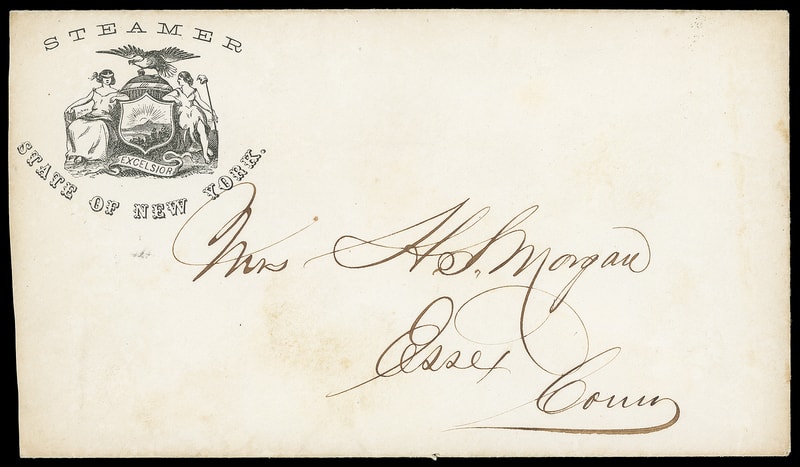 STEAMER
EXCELSIOR
STATE OF NEW YORK.
Mrs H. S. Morgan
Essex
Conn